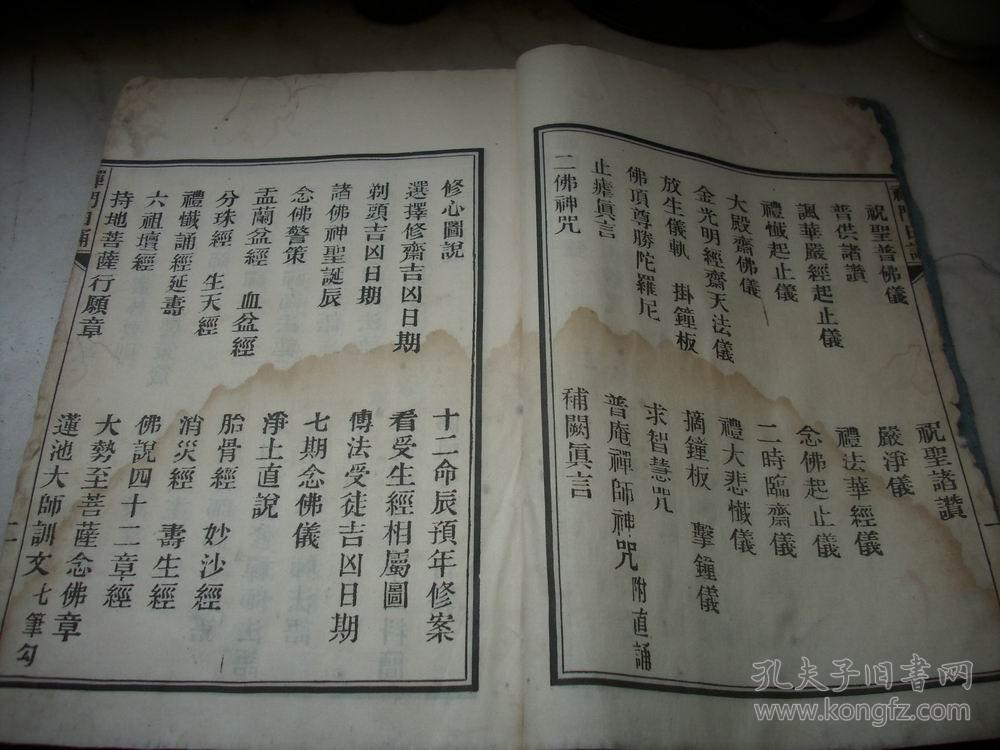 祝聖普佛儀 祝聖諸讚
普供諸讚 嚴淨儀
諷華嚴經起止儀 禮法華經儀
禮懺起止儀 念佛起止儀
大殿齋佛儀 二時臨齋儀
金光明經齋天法儀 禮大悲懺儀
放生儀軌 掛鐘板 摘鐘板 擊鐘儀
佛頂尊勝陀羅尼 求智慧咒
止瘧眞言 普庵禪師神咒 附直誦
二佛神咒 補闕眞言
修心圖說 十二命辰預年修案
選擇修齋吉凶日期 看受生經相屬圖
剃頭吉凶日期 傳法受徒吉凶日期
諸佛神聖誕辰 七期念佛儀
念佛警策 淨土直說
盂蘭盆經 血盆經 胎骨經 妙沙經
分珠經 生天經 消災經 壽生經
禮懺誦經延壽 佛說四十二章經
六祖壇經 大勢至菩薩念佛章
持地菩薩行願章 蓮池大師訓文 七筆勾
禪門日誦
二
孔夫子旧书网
www.kongfz.com